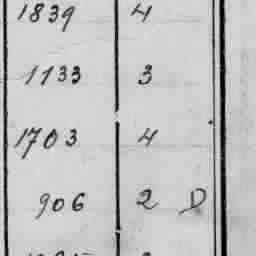 1839 4
1133 3
1703 4
906 2 D